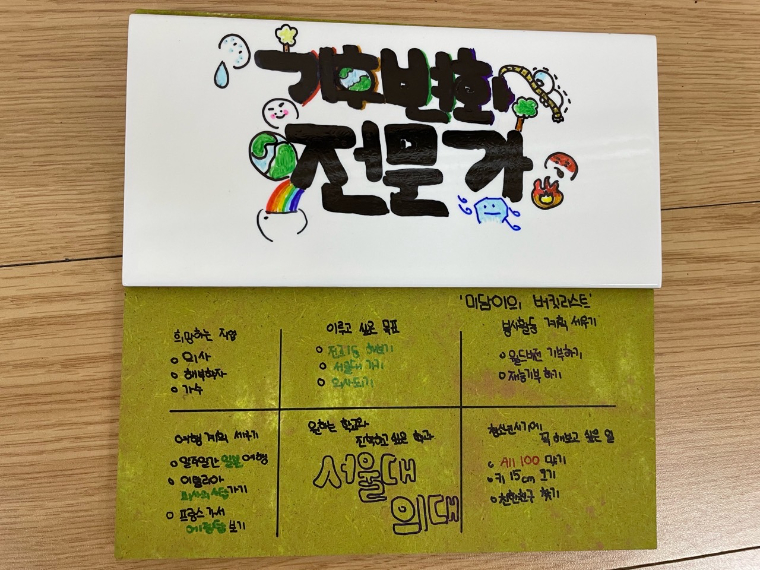 기후변화
전문가
'미담이의 버킷리스트'
희망하는 직업
의사
해부학자
가수
이루고 싶은 목표
전교1등 해보기
서울대 가기
의사되기
봉사활동 계획 세우기
월드비전 기부하기
재능기부 하기
여행 계획 세우기
일주일간 일본 여행
이탈리아
피사의 사탑가기
프랑스 가서
에펠탑 보기
원하는 학교와
진학하고 싶은 학과
서울대
의대
청소년시기에
꼭 해보고 싶은 일
All 100 맞기
키 15cm 크기
친한친구 찾기